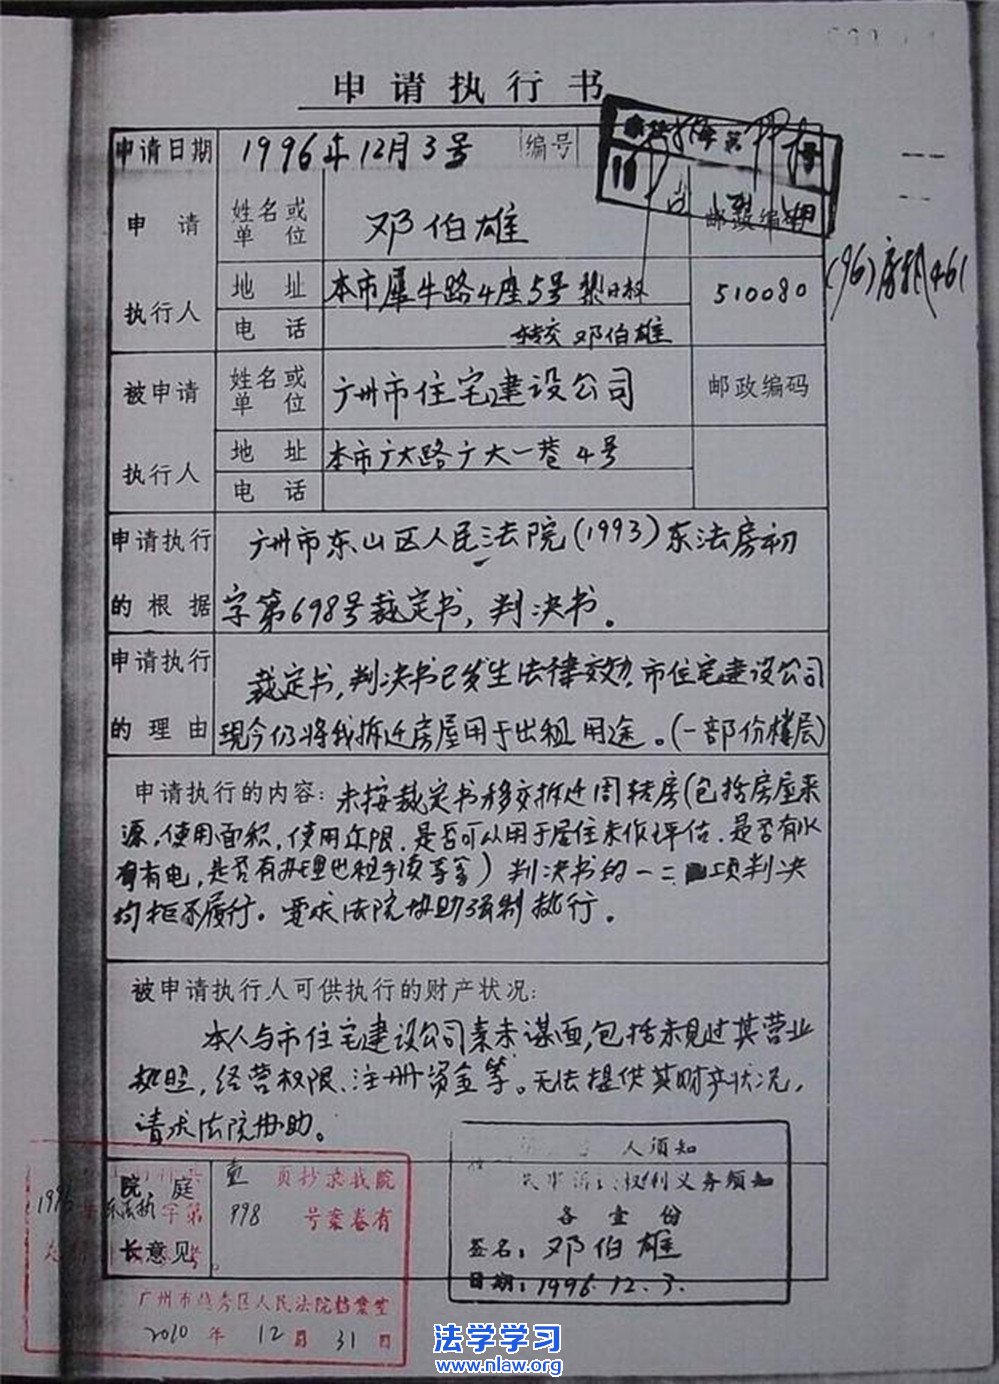 申请执行书
申请日期 1996年12月3号 编号
申请 姓名或单位 邓伯雄 邮政编码
执行人 地址 本市犀牛路4座5号 510080
(96)房执461
电话 转交邓伯雄
被申请 姓名或单位 广州市住宅建设公司 邮政编码
执行人 地址 本市广大路广大一巷4号
电话
申请执行 广州市东山区人民法院(1993)东法房初
的根据 字第698号裁定书,判决书。
申请执行 裁定书,判决书已发生法律效力,市住宅建设公司
的理由 现今仍将我拆迁房屋用于出租用途。(一部份楼层)
申请执行的内容:未按裁定书移交拆迁周转房(包括房屋来
源,使用面积,使用年限,是否可以用于居住未作评估,是否有水
有电,是否有办理出租手续等等)判决书的一二项判决
均拒不履行。要求法院协助强制执行。
被申请执行人可供执行的财产状况:
本人与市住宅建设公司素未谋面,包括未见过其营业
执照,经营权限、注册资金等。无法提供其财产状况,
请求法院协助。
人须知
权利义务须知
各壹份
签名:邓伯雄
日期:1996.12.3.
院庭
长意见
页抄录我院
998 号案卷有
广州市越秀区人民法院档案室
2010年12月31日
法学学习
www.nlaw.org